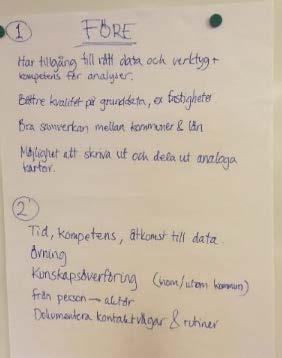 1 FÖRE
Har tillgång till rätt data och verktyg +
kompetens för analyser.
Bättre kvalitet på grunddata, ex fastigheter
Bra samverkan mellan kommuner & län
Möjlighet att skriva ut och dela ut analoga
kartor.
2
Tid, kompetens, åtkomst till data.
Övning
Kunskapsöverföring (inom/utom kommun)
från person → aktör
Dokumentera kontaktvägar & rutiner